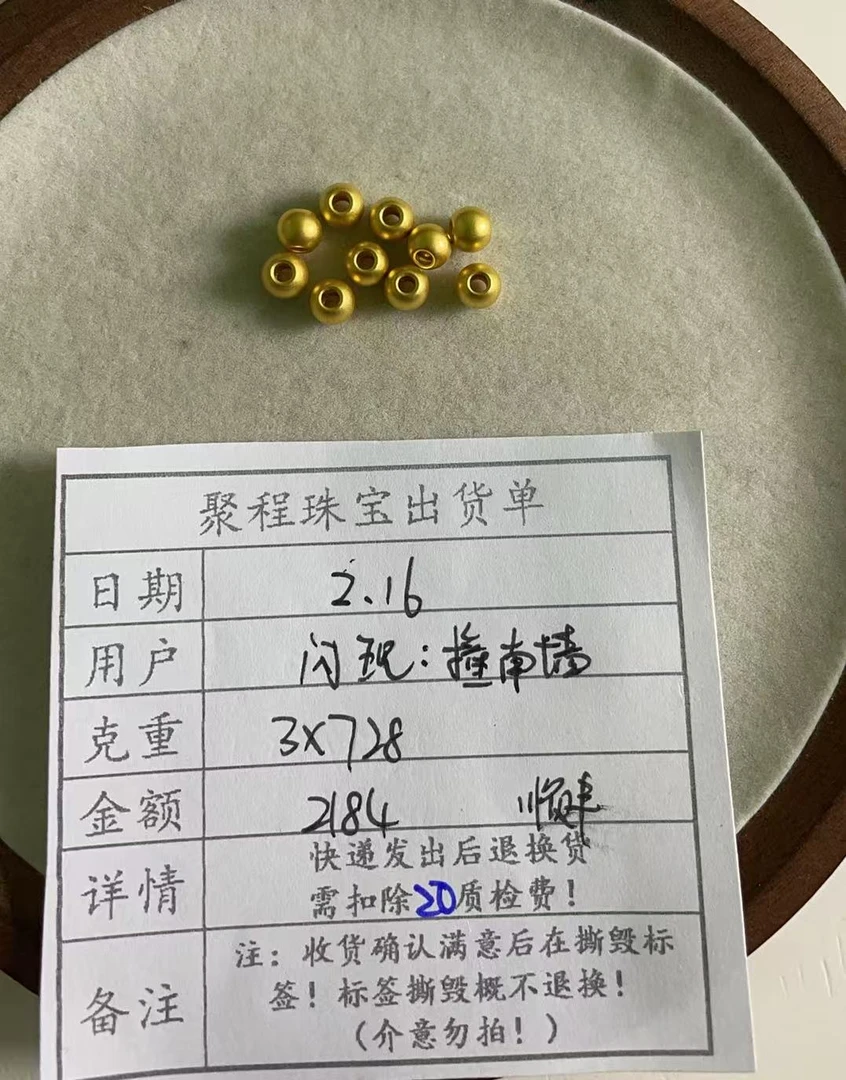 聚程珠宝出货单
日期 2.16
用户 闪现：撞南墙
克重 3X728
金额 2184 顺丰
详情 快递发出后退换货
需扣除20质检费！
备注 注：收货确认满意后在撕毁标
签！标签撕毁概不退换！
（介意勿拍！）